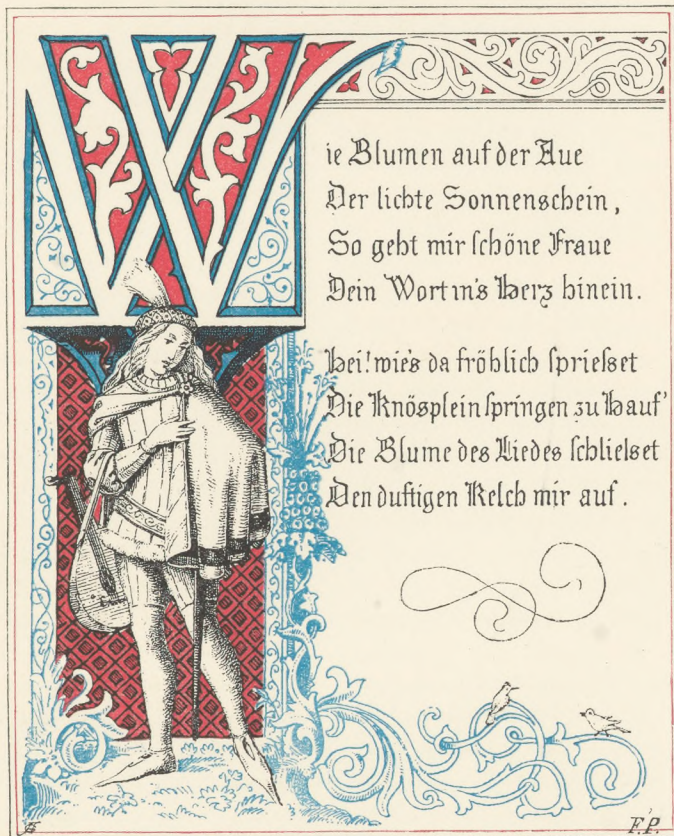 Wie Blumen auf der Aue
Der lichte Sonnenschein,
So geht mir ſchöne Fraue
Dein Wort in's Herz hinein.
Hei! wie's da fröhlich ſprieſset
Die Knösplein ſpringen zu Hauf'
Die Blume des Liedes ſchlieſset
Den duftigen Kelch mir auf.
F.P.